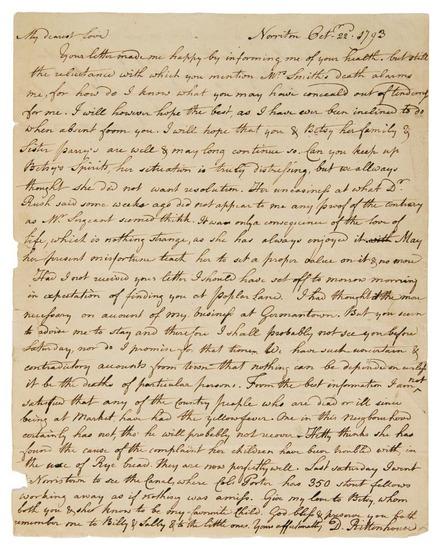 My dearest Love Norriton Octr. 22. 1793
Your letter made me happy by informing me of your health, but still
the reluctance with which you mention Mrs. Smith's death alarms
me, for how do I know what you may have conceald out of tenderness
for me. I will however hope the best, as I have ever been inclined to do
when absent from you. I will hope that you & Betsy her family &
Sister Parry's are well & may long continue so. Can you keep up
Betsy's Spirits, her situation is truly distressing, but we allways
thought she did not want resolution. Her uneasiness at what Dr.
Rush said some weeks ago did not appear to me any proof of the contrary
as Mr. Sergeant seemed think. It was only a consequence of the love of
life, which is nothing strange, as she has always enjoyed it May
her present misfortune teach her to set a proper value on it & no more
Had I not received your letter I should have set off to morrow morning
in expectation of finding you at Poplar Lane. I had thought the more
necessary on account of my business at Germantown. But you seem
to advise me to stay and therefore I shall probably not see you before
Saturday, nor do I promise for that time. We have such uncertain &
contradictory accounts from town that nothing can be depended on unless
it be the deaths of particular persons. From the best information I am not
satisfied that any of the Country people who are died or ill since
being at Market, have had the yellow fever. One in this neighbourhood
certainly has not tho he will probably not recover. Hetty thinks she has
found the cause of the complaint her children have been troubled with, in
the use of Rye bread. They are now perfectly well. Last saturday I went
Norristown to see the Canal, where Col. Porter has 350 stout fellows
working away as if nothing was amiss. Give my love to Betsy, whom
both you & she know to be my favorite Child. God bless & preserve you both
remember me to Billy & Sally & to the little ones. Yours affectionately D. Rittenhouse